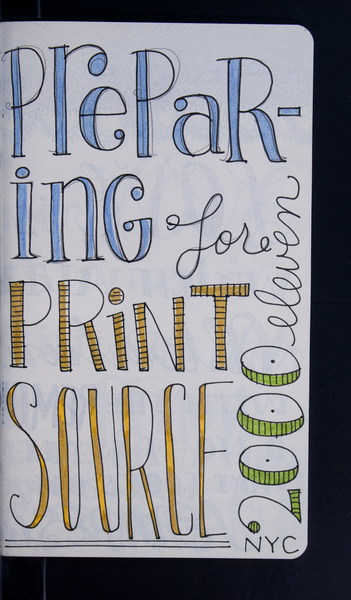 PrePar-
ing for
PRiNT
SOURCE
2000 eleven
NYC